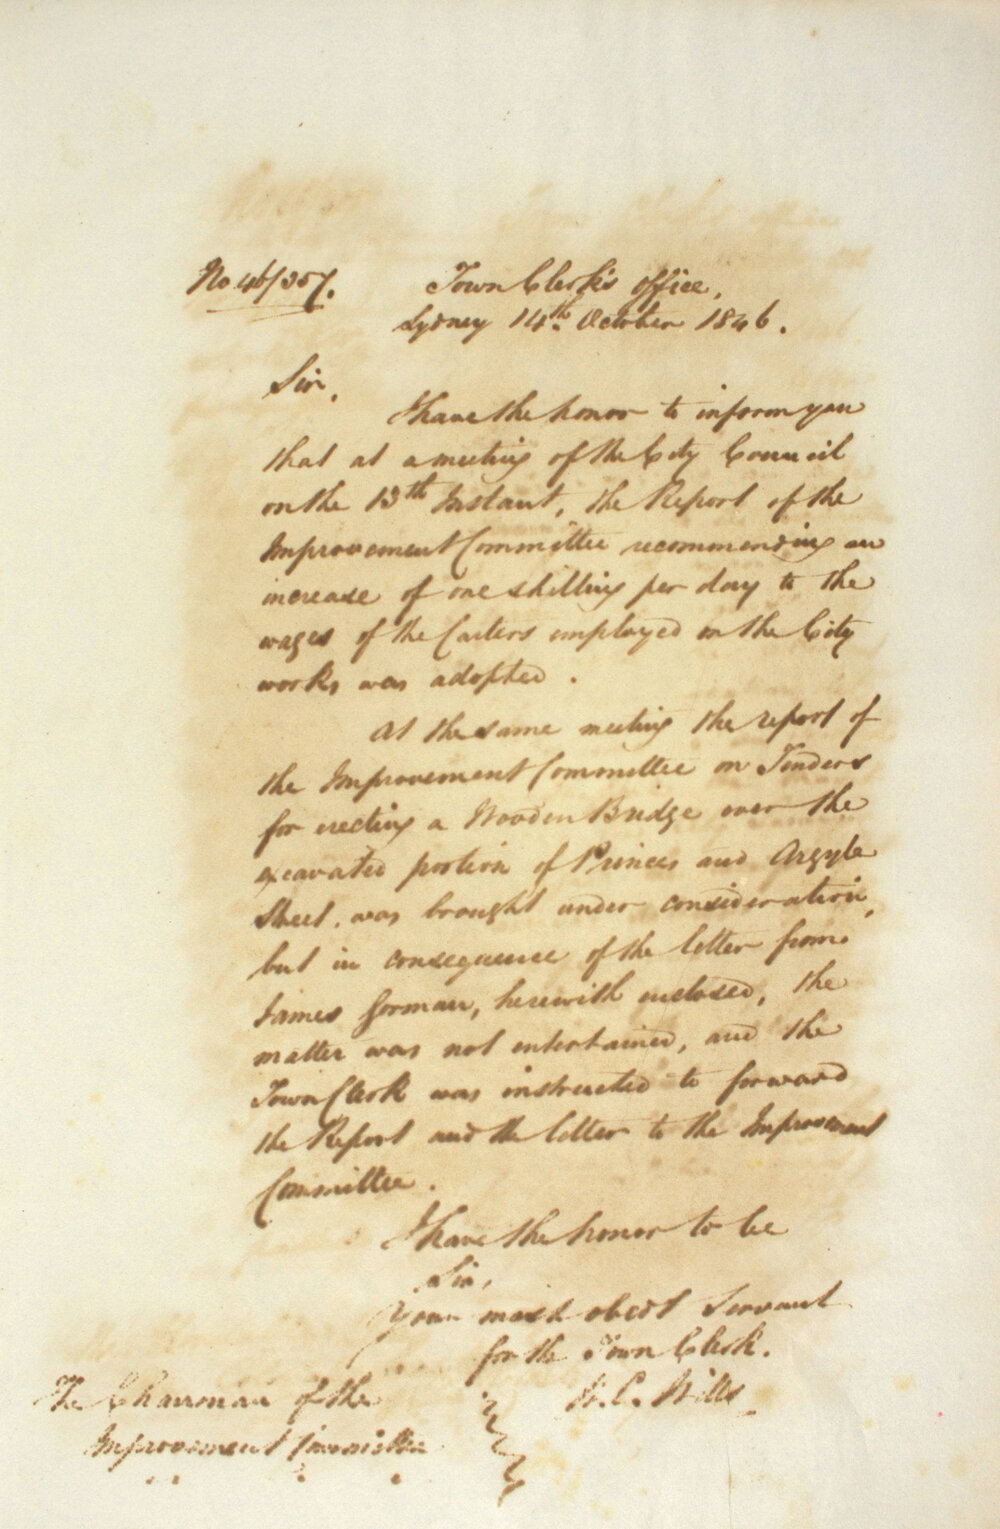 No. 46/357.
Town Clerk's office,
Sydney 14th. October 1846.
Sir,
I have the honor to inform you
that at a meeting of the City Council
on the 13th Instant, the Report of the
Improvement Committee recommending an
increase of one shilling per day to the
wages of the Carters employed on the City
works was adopted.
At the same meeting the report of
the Improvement Committee on Tenders
for erecting a Wooden Bridge over the
excavated portion of Princes and Argyle
Street, was brought under consideration,
but in consequence of the letter from
James Gorman, herewith enclosed, the
matter was not entertained, and the
Town Clerk was instructed to forward
the Report and the letter to the Improvement
Committee.
I have the honor to be
Sir,
Your most obedt Servant
for the Town Clerk.
W. C. Wills
The Chairman of the
Improvement Committee